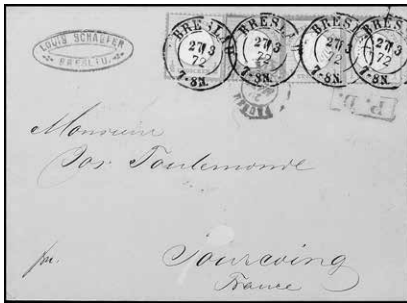 LOUIS SCHAEFER
BRESLAU.
BRESLAU
27/3
72
7-8N.
BRESLAU
27/3
72
7-8N.
BRESLAU
27/3
72
7-8N.
BRESLAU
27/3
72
7-8N.
P.D.
Monsieur
Jos. Toulemonde
pr.
Tourcoing
France